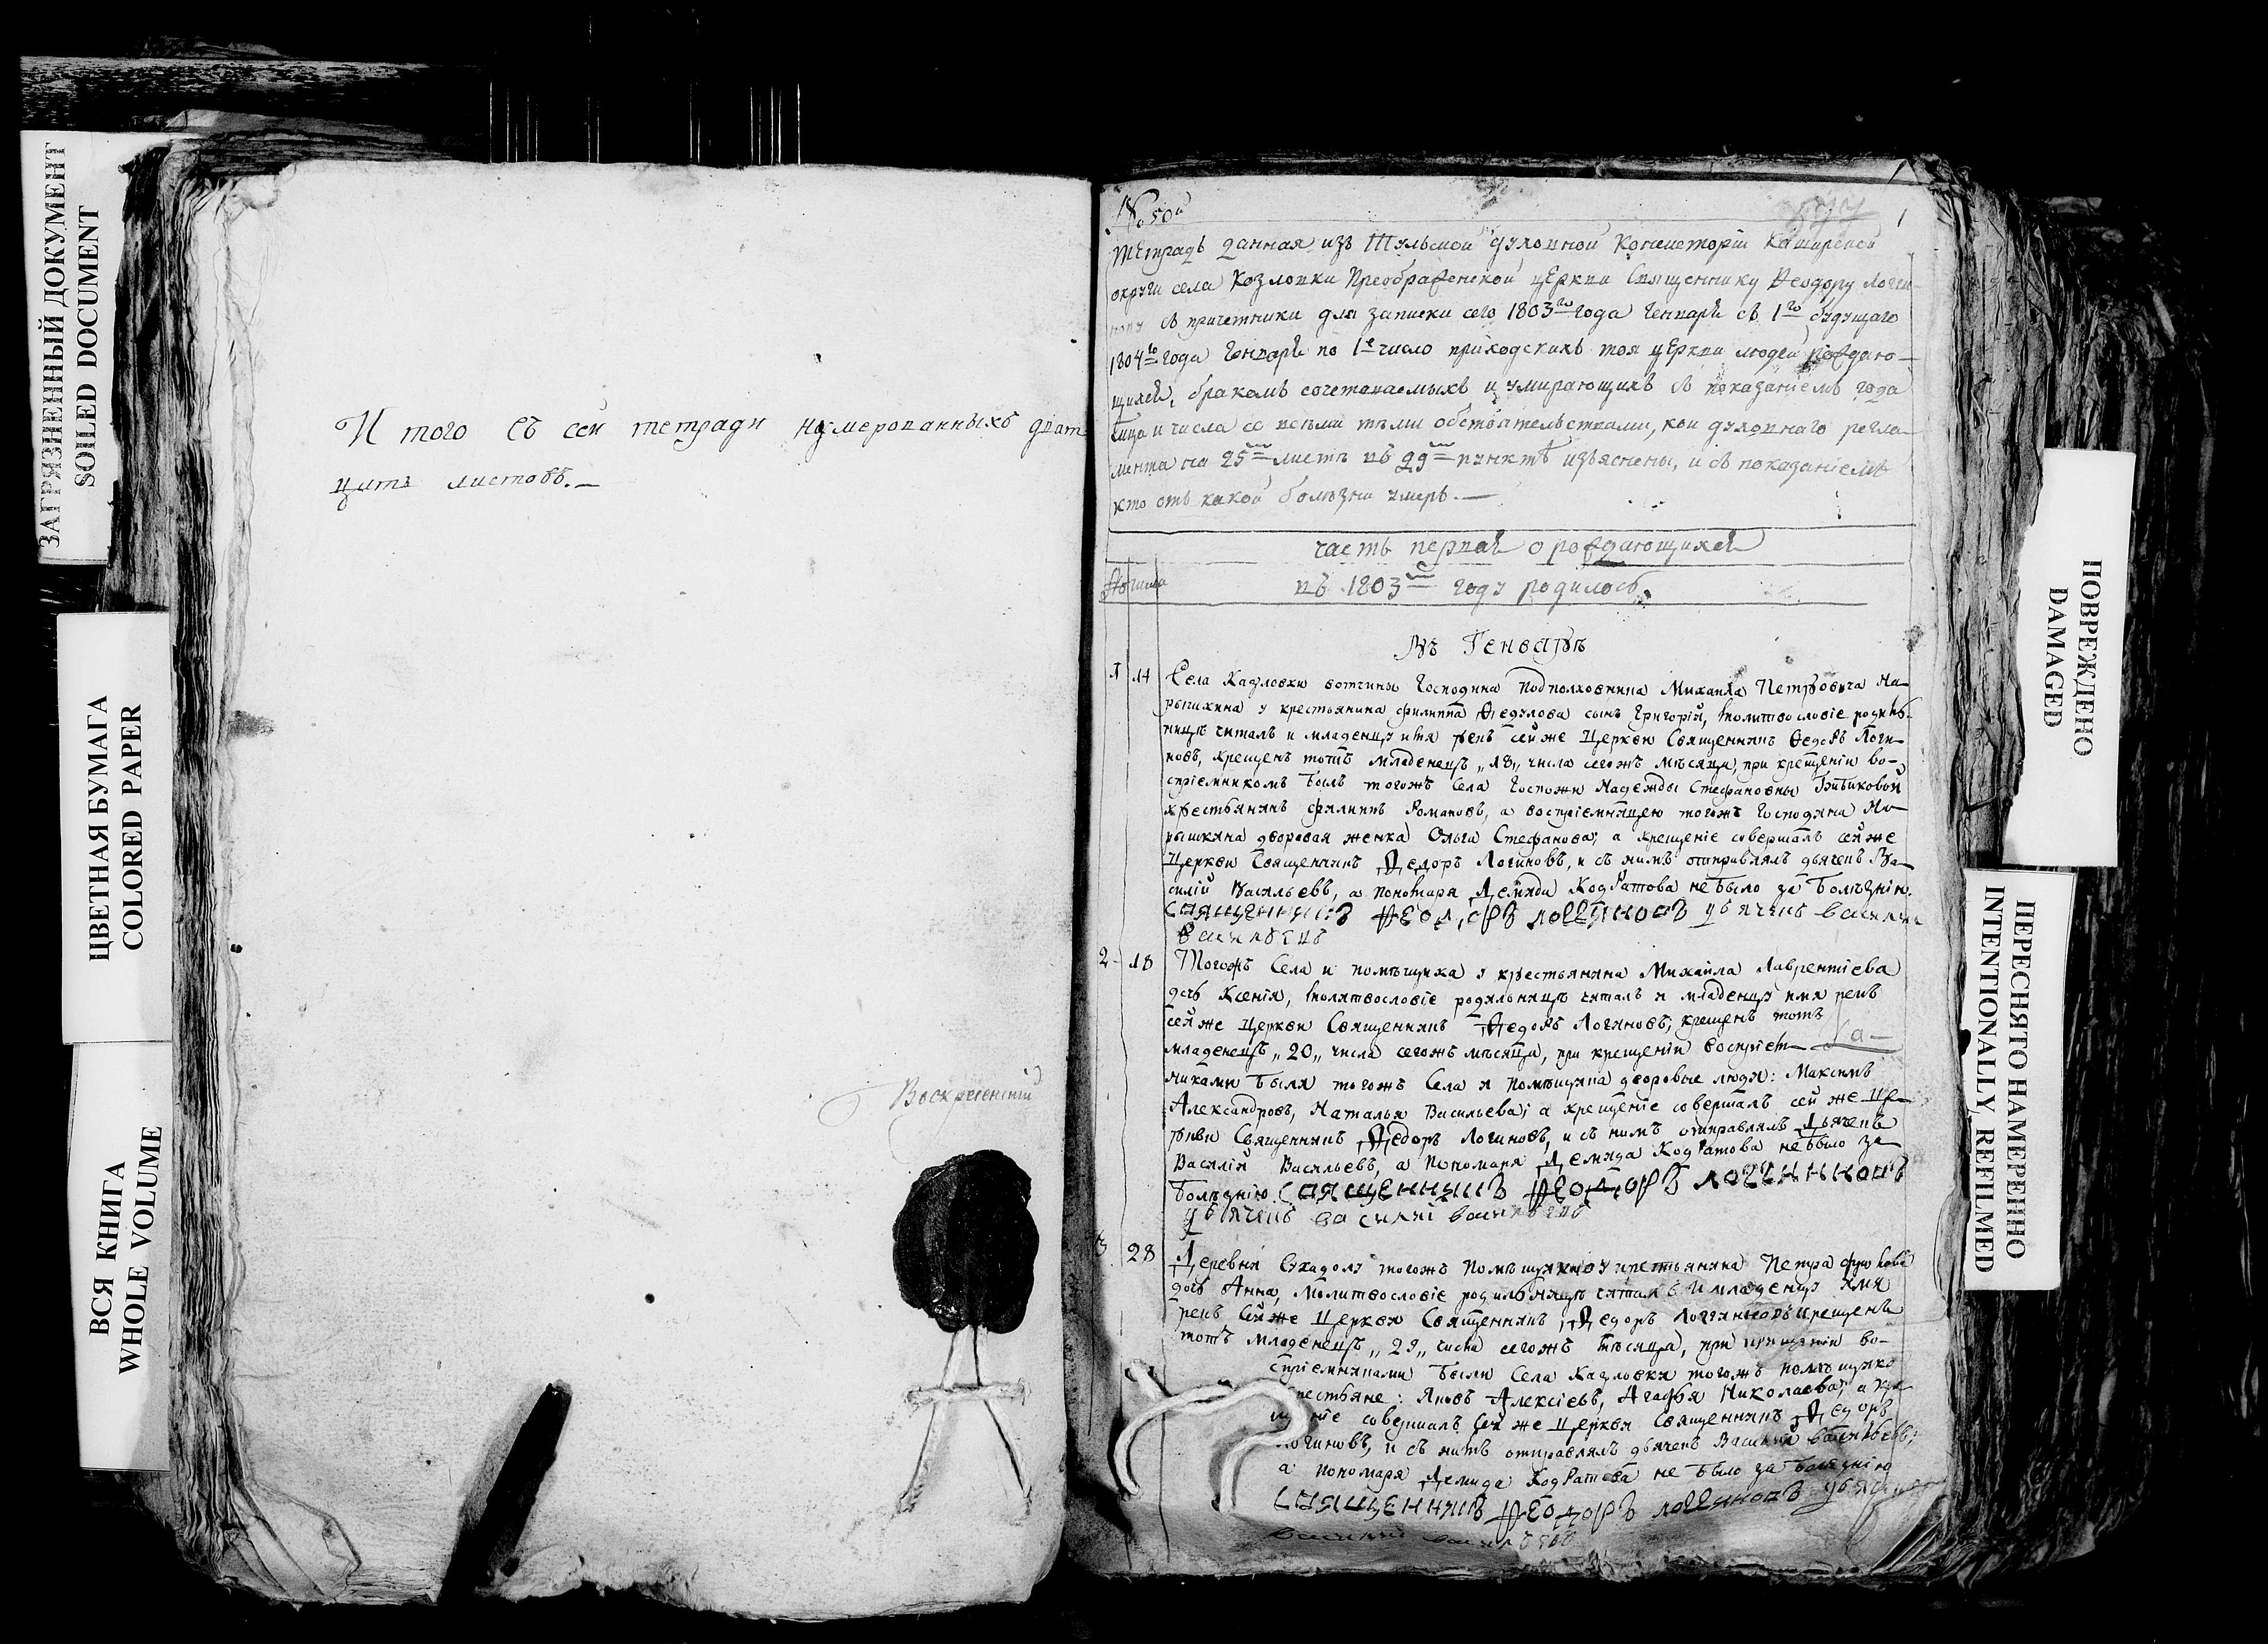 ЗАГРЯЗНЕННЫЙ ДОКУМЕНТ
SOILED DOCUMENT
ЦВЕТНАЯ БУМАГА
COLORED PAPER
ВСЯ КНИГА
WHOLE VOLUME
И того въ сей тетради нумерованныхъ дват
цать листовъ.—
Воскресенскій
№ 50й
1
Тетрадь данная изъ Тульской духовной Консисторіи Каширской
округи села Козловки Преображенской церкви Священнику Ѳеодору Логги
нову съ причетники для записки сего 1803го года Генваря съ 1го будущаго
1804го года Генваря по 1е число приходскихъ тоя церкви людей раждаю—
щихся, бракомъ сочетаваемыхъ и умирающихъ съ показаніемъ года
мца и числа со всѣми тѣми обстоятельствами, кои духовнаго регла—
мента на 25м листѣ въ 29м пунктѣ изъяснены, и съ показаніемъ
кто отъ какой болѣзни умеръ.—
часть первая о раждающихся
въ 1803м году родилось.
Въ Генварѣ
1 14 Села Казловки вотчины Господина Подполковника Михаила Петровича На—
рышкина у крестьянина Филиппа Ѳедулова сынъ Григорій, молитвословіе родиль—
ницѣ читалъ и младенцу имя рекъ сей же Церкви Священникъ Ѳедоръ Логи—
новъ, крещенъ тотъ младенецъ „18„ числа сегожъ мѣсяца, при крещеніи во—
спріемникомъ былъ тогожъ Села Госпожи Надежды Стефановны Бибиковой
крестьянинъ Филиппъ Романовъ, а воспріемницею тогожъ Господина На—
рышкина дворовая женка Ольга Стефанова; а крещеніе совершалъ сей же
Церкви Священникъ Ѳедоръ Логиновъ, и съ нимъ отправлялъ дьячекъ Ва—
силій Васильевъ, а пономаря Демида Кодратова не было за болѣзнію.
Священникъ Ѳеодоръ Логгиновъ дьячекъ василий
васильевъ
2 18 Тогожъ Села и помѣщика у крестьянина Михайла Лаврентіева
дочь Ксенія, молитвословіе родильницѣ читалъ и младенцу имя рекъ
сей же Церкви Священникъ Ѳедоръ Логиновъ, крещенъ тотъ
младенецъ „20„ числа сегожъ мѣсяца, при крещеніи воспріем—
никами были тогожъ Села и помѣщика дворовые люди: Максимъ
Александровъ, Наталья Васильева; а крещеніе совершалъ сей же Це—
ркви Священникъ Ѳедоръ Логиновъ, и съ нимъ отправлялъ Дьячекъ
Василій Васильевъ, а Пономаря Демида Кодратова не было за
болѣзнію. Священникъ Ѳеодоръ Логгинновъ
дьячекъ василиі васильевъ
3 28 Деревни тогожъ Помѣщика у крестьянина Петра
дочь Анна, Молитвословіе родильницѣ читалъ и младенцу имя
рекъ, сей же Церкви Священникъ Ѳедоръ Логгиновъ крещенъ
тотъ младенецъ „29„ числа сегожъ мѣсяца, при крещеніи во—
спріемниками были Села Казловки тогожъ помѣщика
крестьяне: Яковъ Алексіевъ, Агафья Николаева; а кре
щеніе совершалъ сей же Церкви Священникъ Ѳедоръ
Логиновъ, и съ нимъ отправлялъ дьячекъ Василий васильевъ;
а пономаря Демида Кодратова не было за болѣзнію
Священникъ Ѳеодоръ Логгиновъ дьячекъ
василий васильевъ
ПОВРЕЖДЕНО
DAMAGED
ПЕРЕСНЯТО НАМЕРЕННО
INTENTIONALLY REFILMED